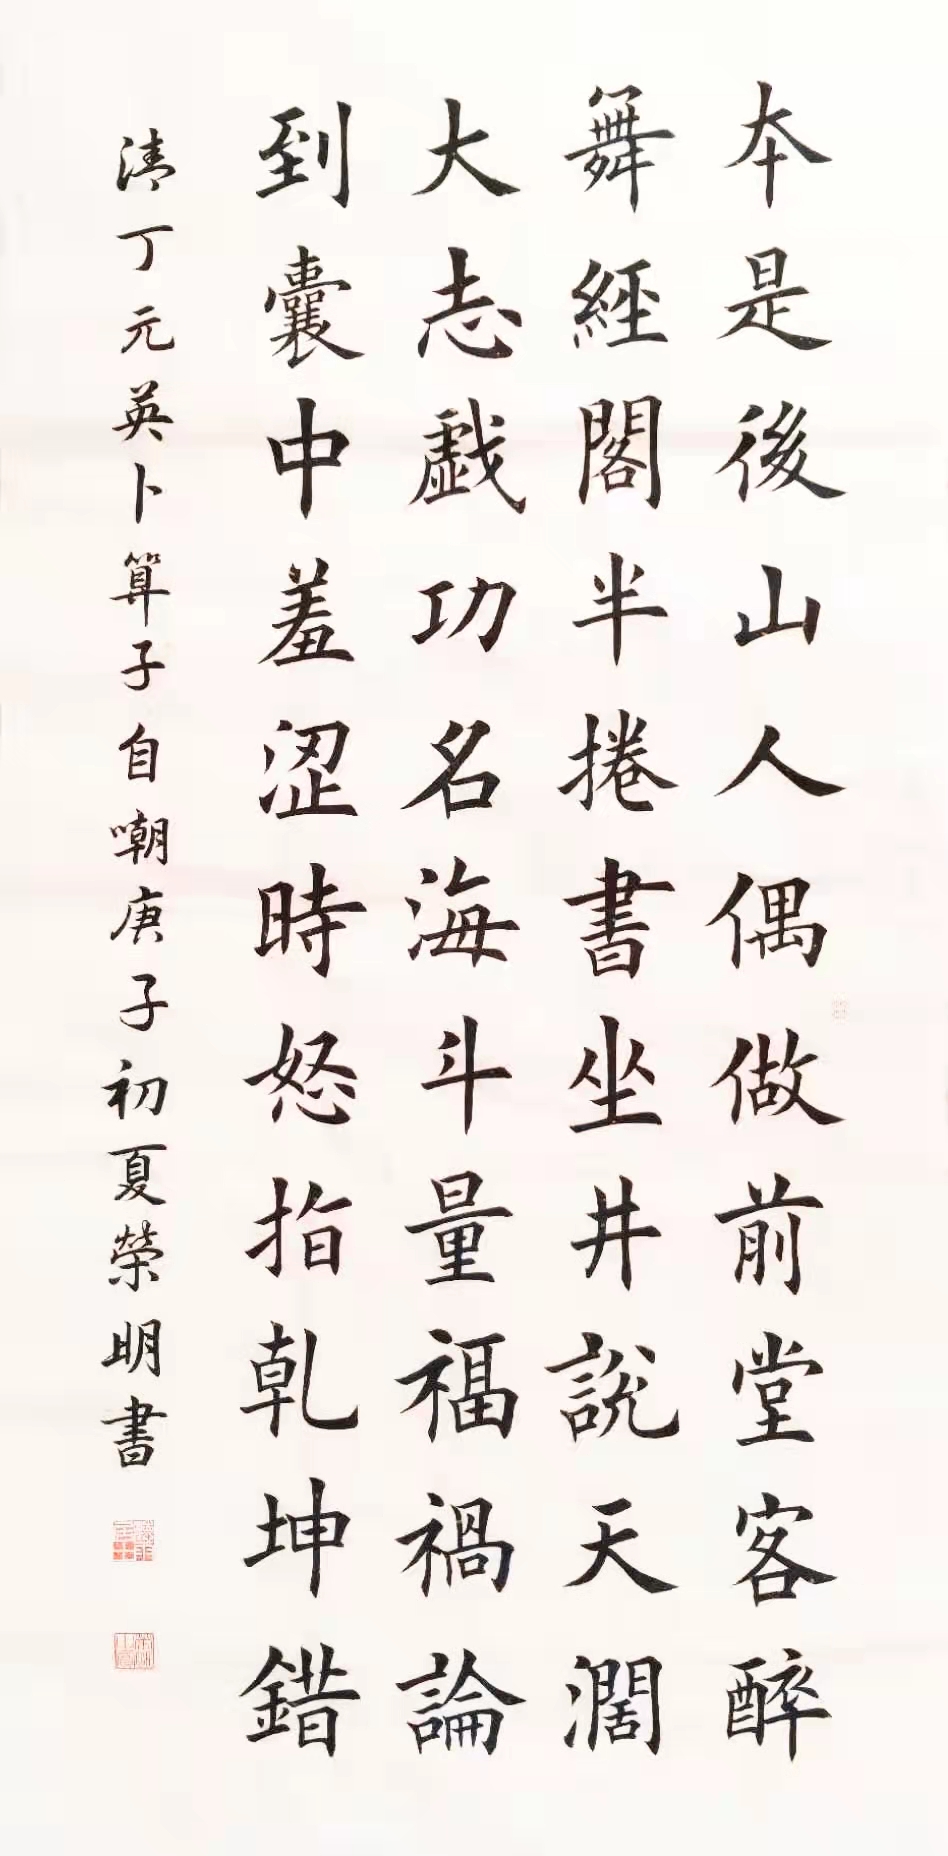 本是後山人偶做前堂客醉
舞經閣半捲書坐井説天濶
大志戯功名海斗量福禍論
到囊中羞涩時怒指乾坤錯
清丁元英卜算子自嘲庚子初夏榮明書